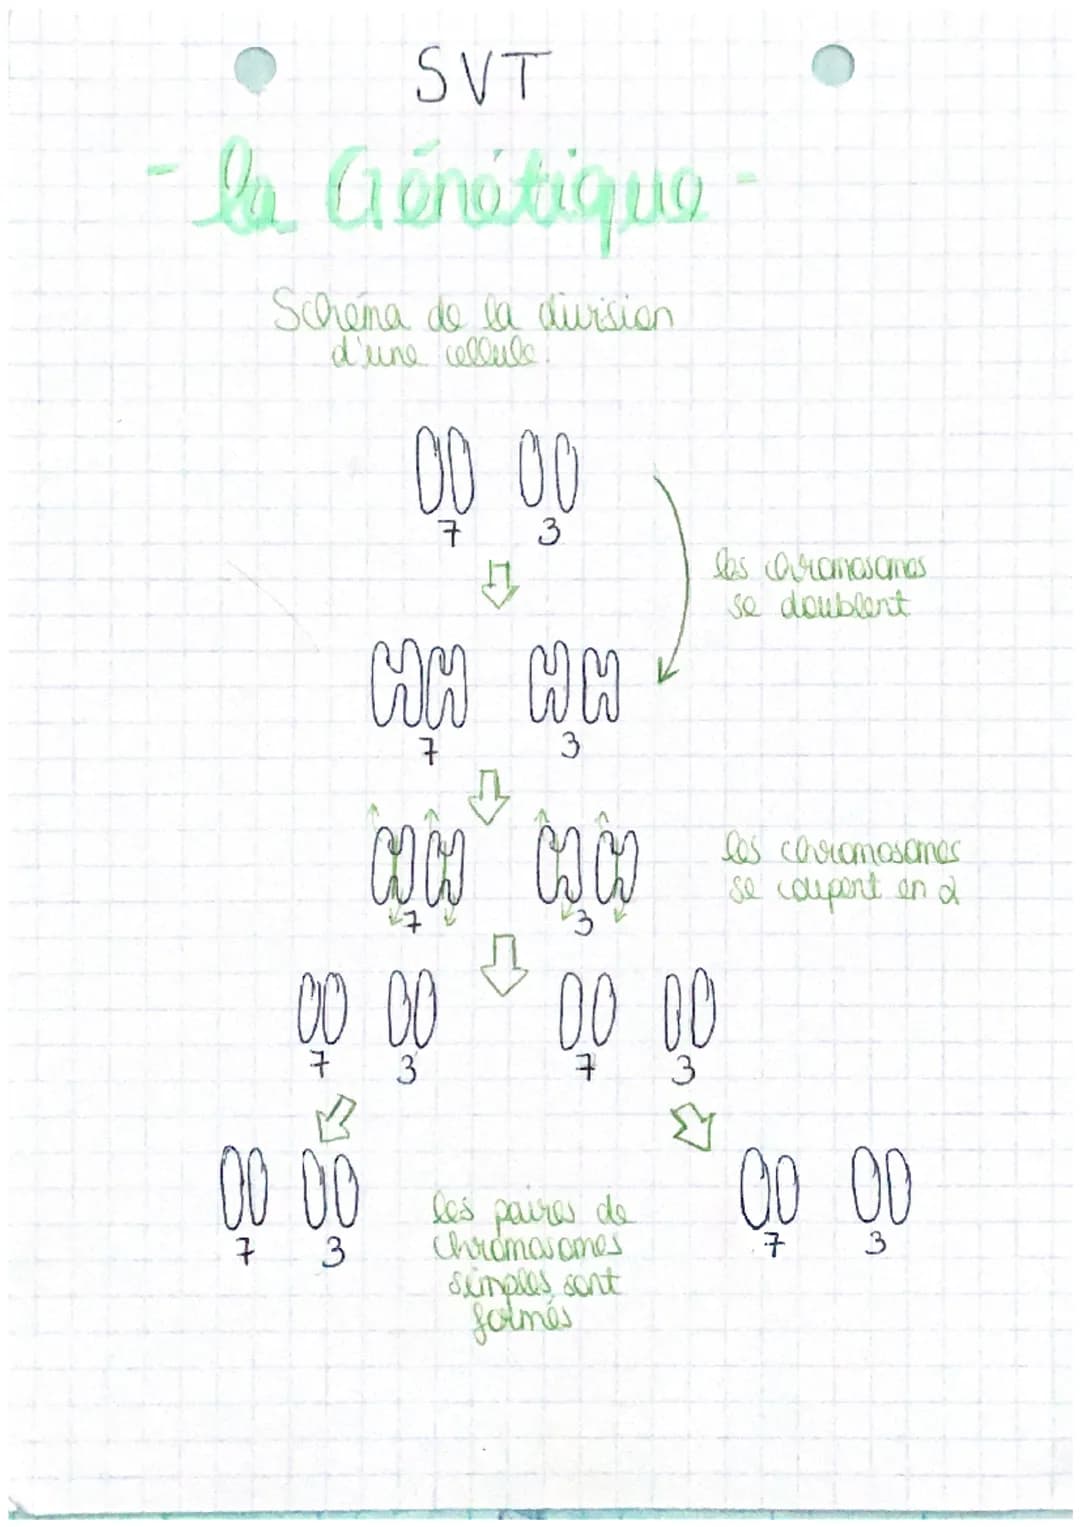 SVT
- la Génétique -
Schéma de la division
d'une cellule.
7 3
les chromosomes
se doublent
7 3
les chromosomes
se coupent en 2
7 3
7 3 7 3
7 3 7 3
les paires de
chromosomes
simples sont
formés